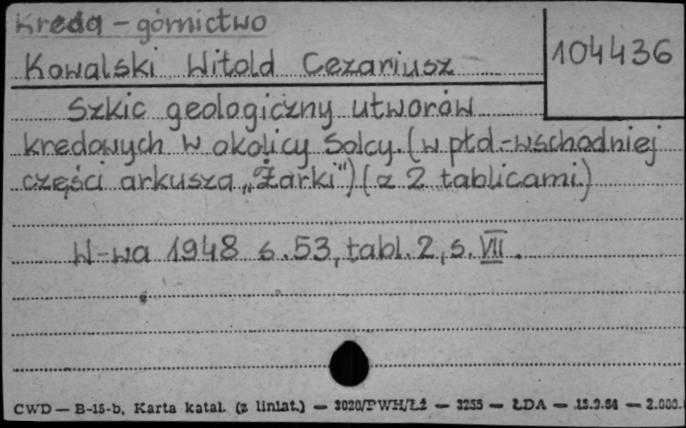 Kreda - górnictwo
104436
Kowalski Witold Cezariusz
Szkic geologiczny utworów
kredowych w okolicy Solcy. (w płd.-wschodniej
części arkusza „Żarki") (z 2 tablicami.)
W-wa 1948 s. 53, tabl. 2, s. VII.
CWD — B-15-b, Karta katal. (z liniat.) — 3020/PWH/Łź — 3255 — ŁDA — 15.9.64 — 2.000.